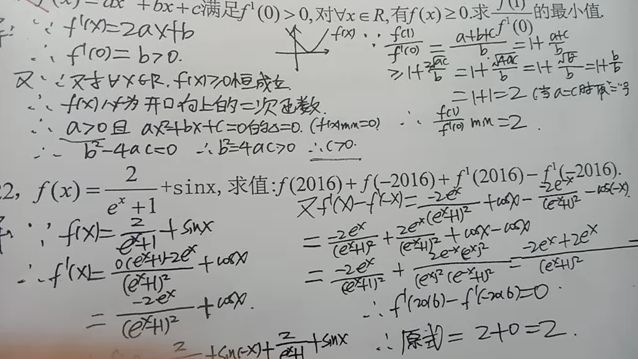 (x)=ax²+bx+c满足f'(0)>0,对∀x∈R,有f(x)≥0.求f(1)/f'(0)的最小值.
∵ f'(x)=2ax+b
∴ f'(0)=b>0.
又∵对∀x∈R. f(x)≥0恒成立
∴ f(x)必为开口向上的二次函数.
∴ a>0且 ax²+bx+c=0的△=0. (f(x)min=0)
∴ b²-4ac=0 ∴b²=4ac>0 ∴c>0.
f(x)
∵ f(1)/f'(0) = (a+b+c)/b = 1+(a+c)/b
≥1+2√ac/b=1+√4ac/b=1+√b²/b=1+b/b
=1+1=2 (当a=c时取"="号
∴ f(1)/f'(0) min=2.
22, f(x)=2/(eˣ+1)+sinx, 求值:f(2016)+f(-2016)+f'(2016)-f'(-2016).
∵ f(x)=2/(eˣ+1)+sinx
∴ f'(x)=(0(eˣ+1)-2eˣ)/(eˣ+1)²+cosx
=-2eˣ/(eˣ+1)²+cosx.
2/ +sin(-x)+2/(eˣ+1)+sinx
又f'(x)-f'(-x)=-2eˣ/(eˣ+1)²+cosx-(-2e⁻ˣ)/(e⁻ˣ+1)²-cos(-x)
=-2eˣ/(eˣ+1)²+2e⁻ˣ/(e⁻ˣ+1)²+cosx-cosx
=-2eˣ/(eˣ+1)²+2e⁻ˣ(eˣ)²/(eˣ)²(e⁻ˣ+1)²=(-2eˣ+2eˣ)/(eˣ+1)²
∴ f'(2016)-f'(-2016)=0.
∴原式=2+0=2.